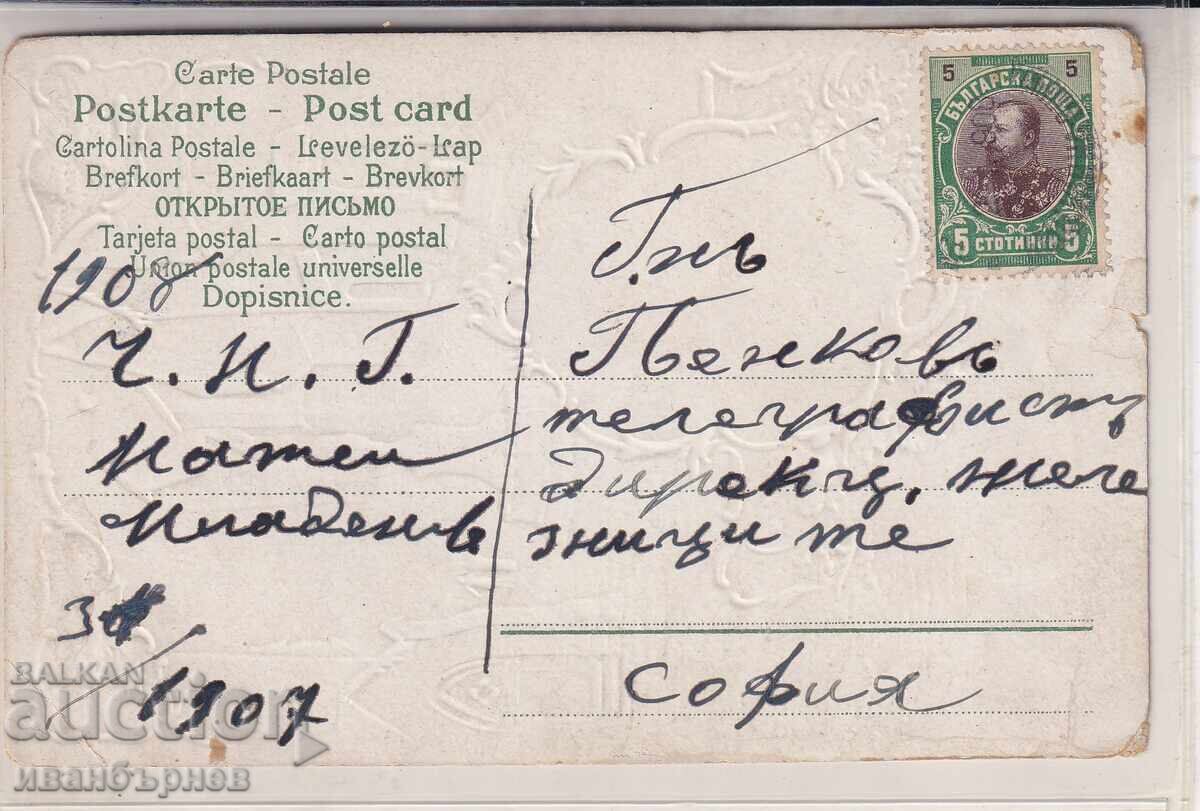 Carte Postale
Postkarte - Post card
Cartolina Postale - Levelezö-Lap
Brefkort - Briefkaart - Brevkort
ОТКРЫТОЕ ПИСЬМО
Tarjeta postal - Carto postal
Union postale universelle
Dopisnice.
1908
Ч. Н. Г.
Матеи
Младенов
1907
5 5
БЪЛГАРСКА ПОЩА
5 СТОТИНКИ 5
Г-нъ
Пенковъ
телеграфистъ
Дирекц. желе
зници те
София
BALKAN
auction
иванбърнев